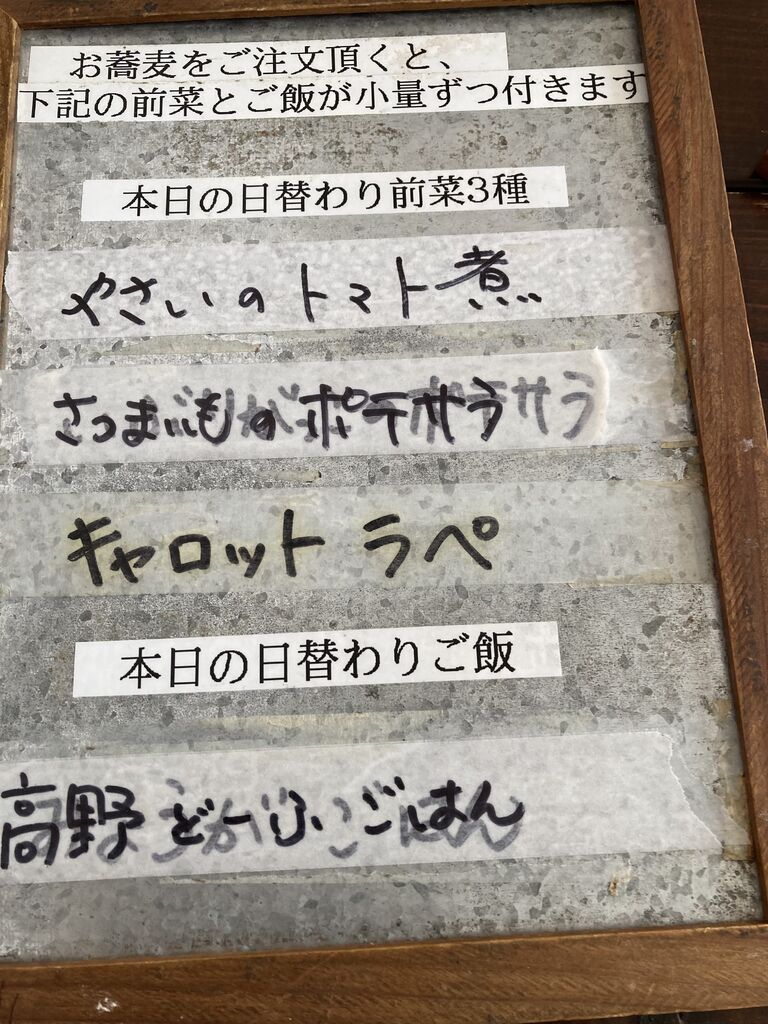 お蕎麦をご注文頂くと、
下記の前菜とご飯が小量ずつ付きます
本日の日替わり前菜3種
やさいのトマト煮
さつまいものポテサラ
キャロットラペ
本日の日替わりご飯
高野どーふごはん